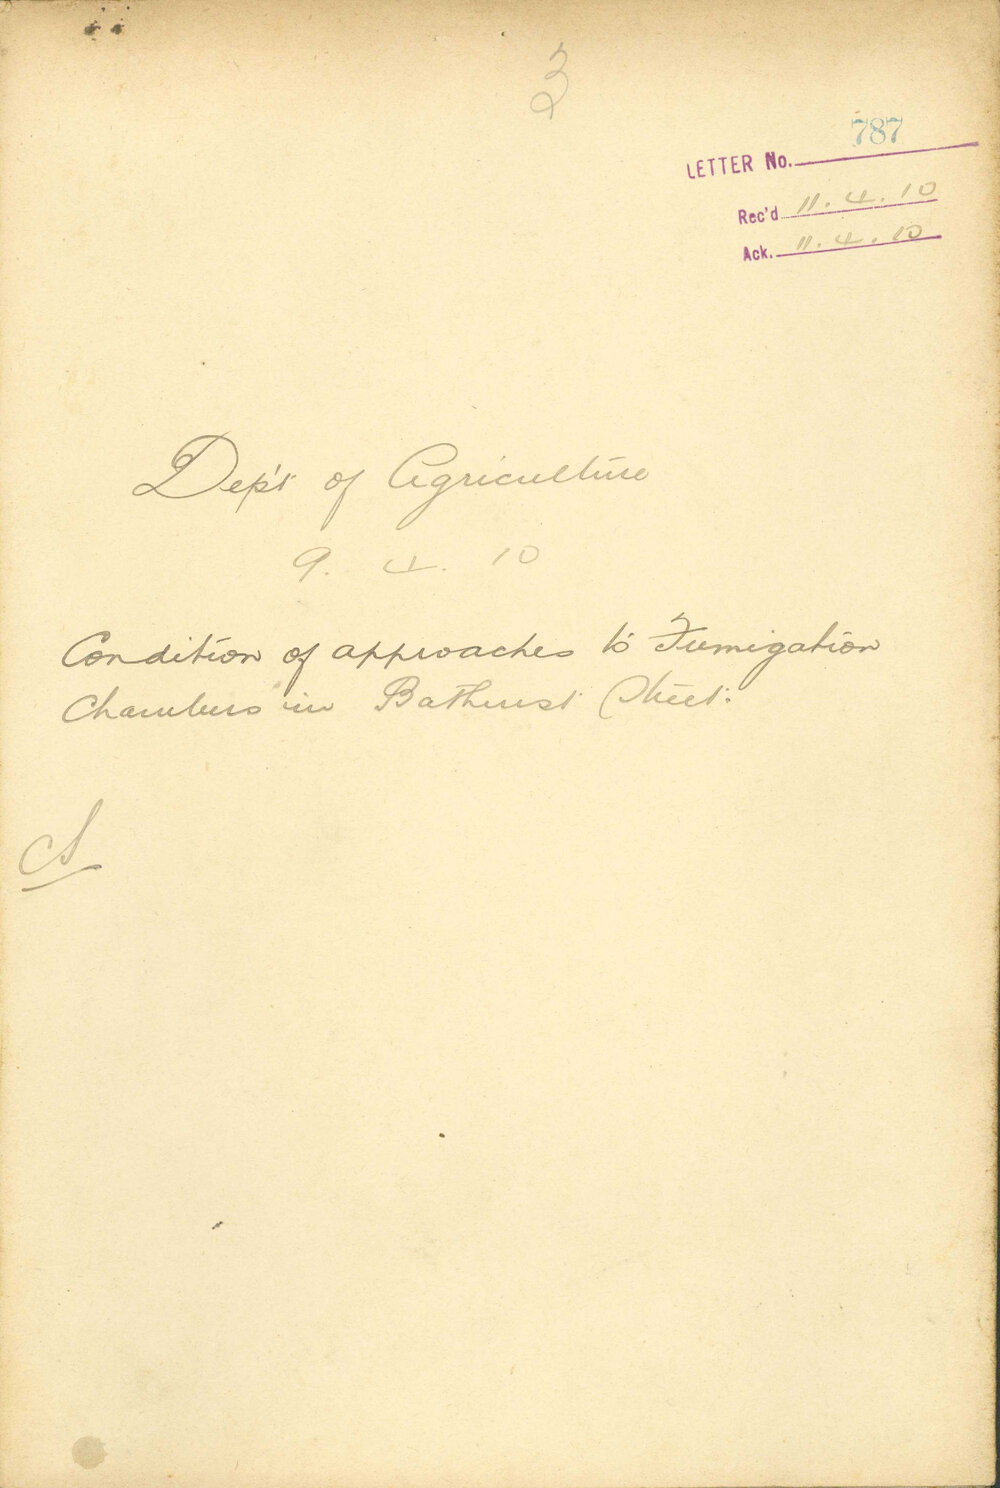 3
787
LETTER No.
Rec'd 11.4.10
Ack. 11.4.10
Dep't of Agriculture
9. 4. 10
Condition of approaches to Fumigation
Chambers in Bathurst Street.